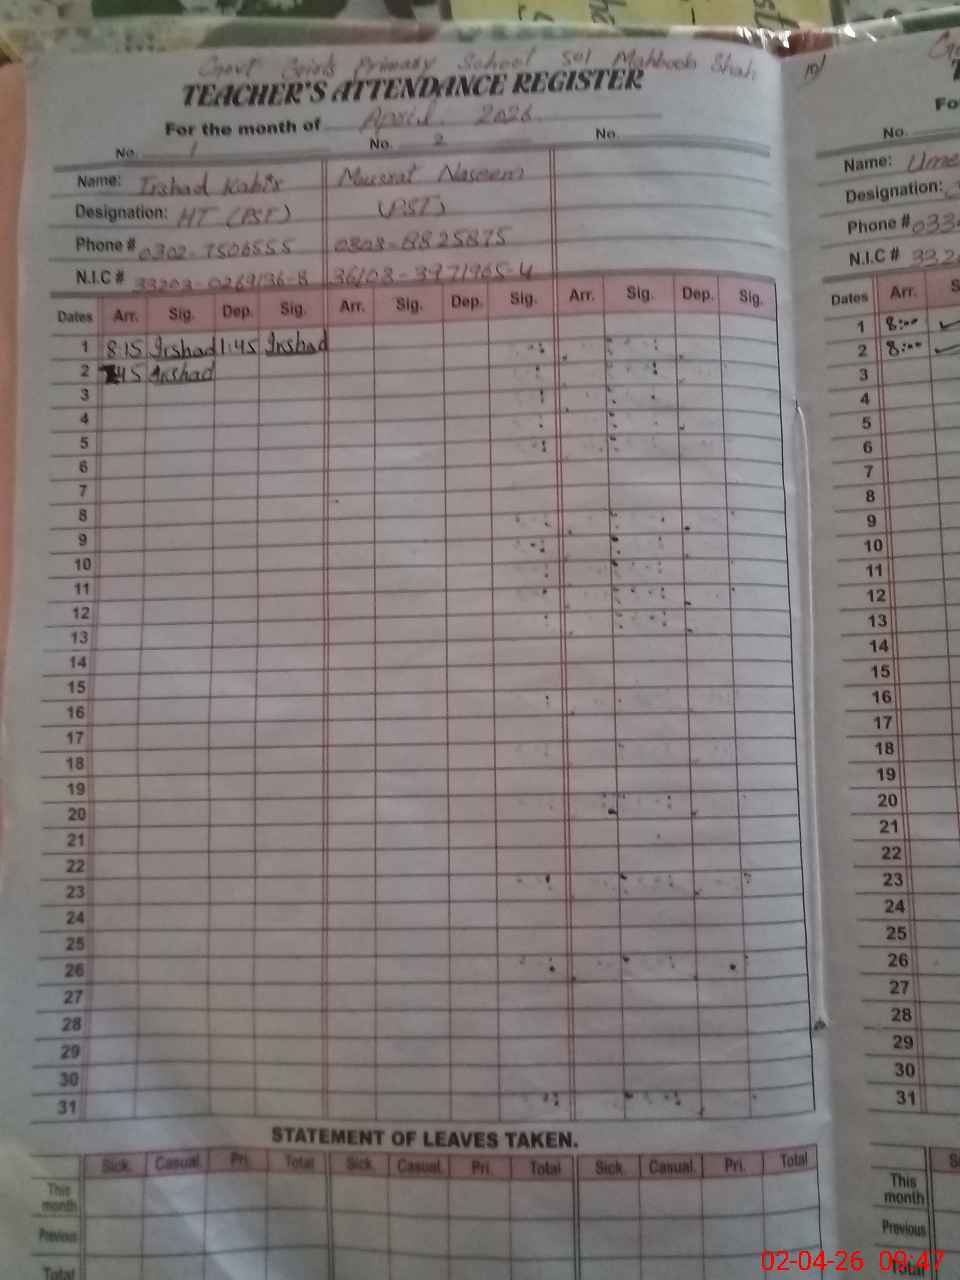 Govt Girls Primary School Sol Mahboob Shah
TEACHER'S ATTENDANCE REGISTER
For the month of April 2026
No. 1 No. 2 No.
Name: Irshad Kabir Mussrat Naseem
Designation: HT (PST) (PST)
Phone # 0302-7506555 0303-8825875
N.I.C # 33203-0269136-8 36103-3971965-4
Dates Arr. Sig. Dep. Sig. Arr. Sig. Dep. Sig. Arr. Sig. Dep. Sig.
1 8:15 Irshad 1:45 Irshad
2 45 Irshad
3
4
5
6
7
8
9
10
11
12
13
14
15
16
17
18
19
20
21
22
23
24
25
26
27
28
29
30
31
STATEMENT OF LEAVES TAKEN.
Sick. Casual. Pri. Total Sick. Casual. Pri. Total Sick. Casual. Pri. Total
This month
Previous
Total
No.
Name: Ume
Designation:
Phone # 033
N.I.C # 33,2
Dates Arr.
1 8:00
2 8:00
3
4
5
6
7
8
9
10
11
12
13
14
15
16
17
18
19
20
21
22
23
24
25
26
27
28
29
30
31
This month
Previous
Total
02-04-26 09:47